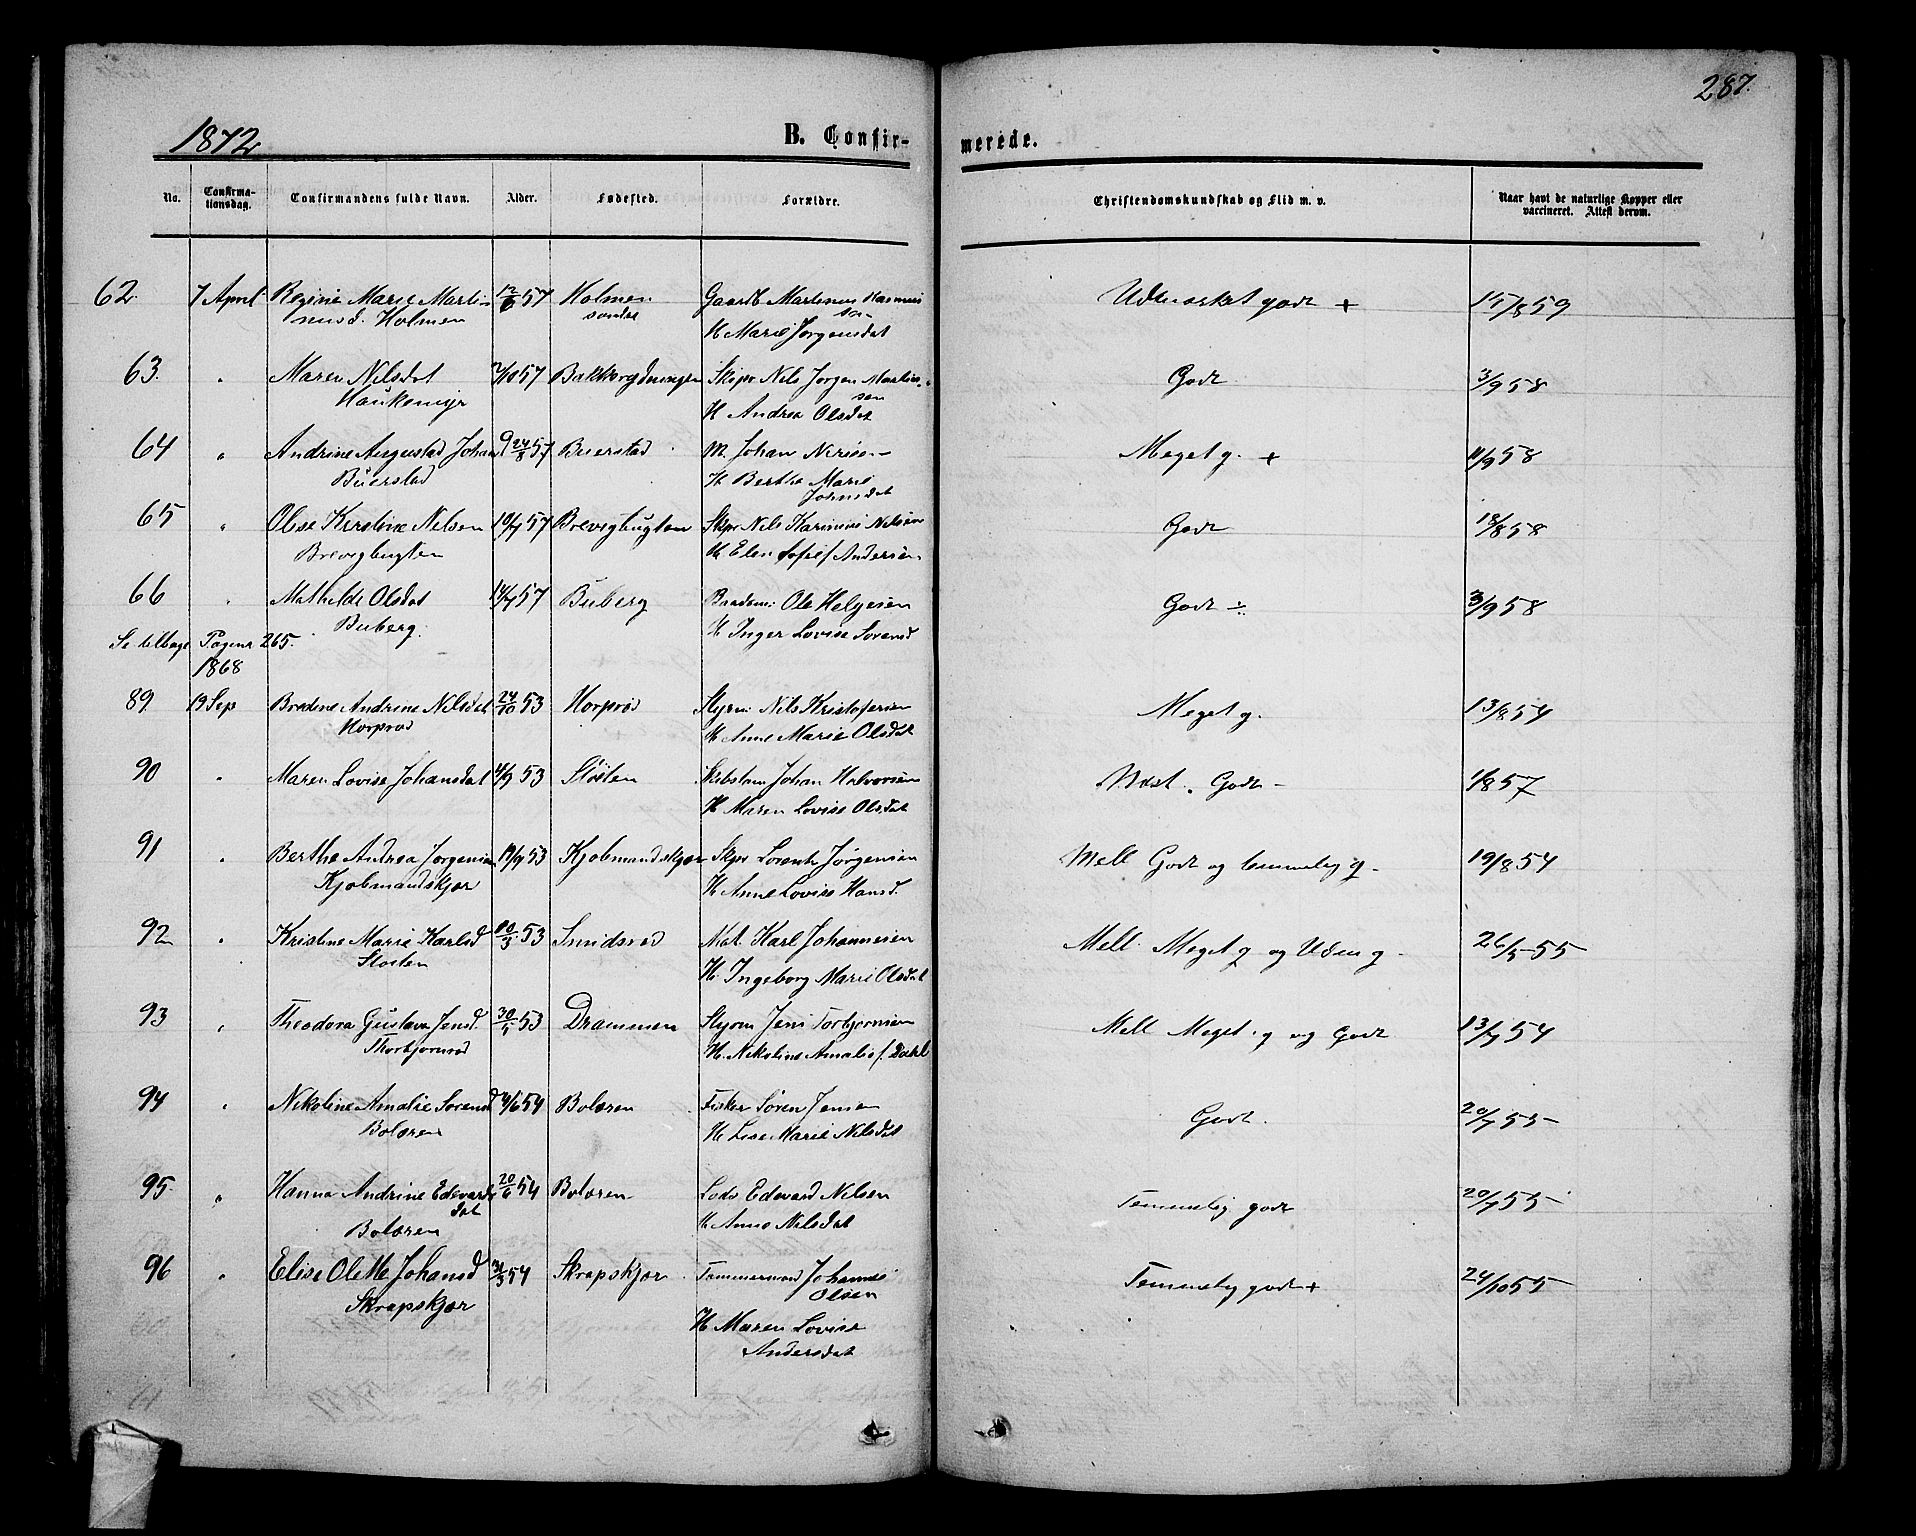 287.
1872
B. Confir-
merede.
No.
Confirma-
tionsdag.
Confirmandens fulde Navn.
Alder.
Fødested.
Forældre.
Christendomskundskab og Flid m. v.
Naar havt de naturlige Kopper eller
vaccineret. Attest derom.
62. 7 April Regine Marie Marti- 12/6 57 Holmen Gaardb Martinus Rasmus Udmærket godt + 15/8 59
nusd. Holmen søndre sen
H Marie Jørgensdat
63. " Maren Nilsdat 2/10 57 Bakkerydningen Skipr Nils Jørgen Martin- Godt 3/9 58
Haukemyr sen
H Andrea Olsdat
64 " Andrine Augustad Johan 24/8 57 Buerstad M. Johan Meget g. + 11/9 58
Buerstad H Berthe Marie
Johnsdat
65 " Olise Kirstine Nilsen 10/7 57 Brevigbugten Skpr Nils Karinius Nilsen Godt 18/8 58
Brevigbugten H Elen Sofie f Andersen
66 " Mathilde Olsdat 14/7 57 Buberg Baadsm: Ole Helgesen Godt ÷ 3/9 58
Buberg. H Inger Lovise Sørensd
Se tilbage Pagina 265.
1868
89 19 Sep Bredine Andrine Nilsdat 24/10 53 Horprød Styrm: Nils Kristofersen Meget g. 13/8 54
Horprød H Anne Marie Olsdat
90 " Maren Lovise Johansdat 4/9 53 Sløsten Skibstøm Johan Halvorsen Næst. Godt - 1/8 57
H Maren Lovise Olsdat
91 " Berthe Andrea Jørgensen 19/9 53 Kjøbmandskjær Skpr Lorents Jørgensen Mell Godt og temmelig g - 19/8 54
Kjøbmandskjær H Anne Lovise Hansd.
92 " Kristine Marie Karlsd 10/3 53 Smidsrød Mat. Karl Johannesen Mell. Meget g og Udm g - 26/5 55
Sløsten H. Ingeborg Marie Olsdat
93 " Theodora Gustava Jensd. 30/1 53 Drammen Styrm Jens Torbjørnsen Mell Meget g og Godt 13/7 54
Thorbjørnrød H. Nikoline Amalie f. Dahl
94 " Nikoline Amalie Sørensd 4/6 54 Bolæren Fisker Søren Jensen Godt. 20/7 55
Bolæren H Lise Marie Nilsdat
95. " Hanna Andrine Edevards 20/6 54 Bolæren Lods Edevard Nilsen Temmelig godt 20/7 55
dat
Bolæren H Anne Nilsdat
96 " Elise Olette Johansd 31/3 54 Skrapskjær Tømmermand Johannes Temmelig godt + 24/10 55
Skrapskjær Olsen
H Maren Lovise
Andersdat